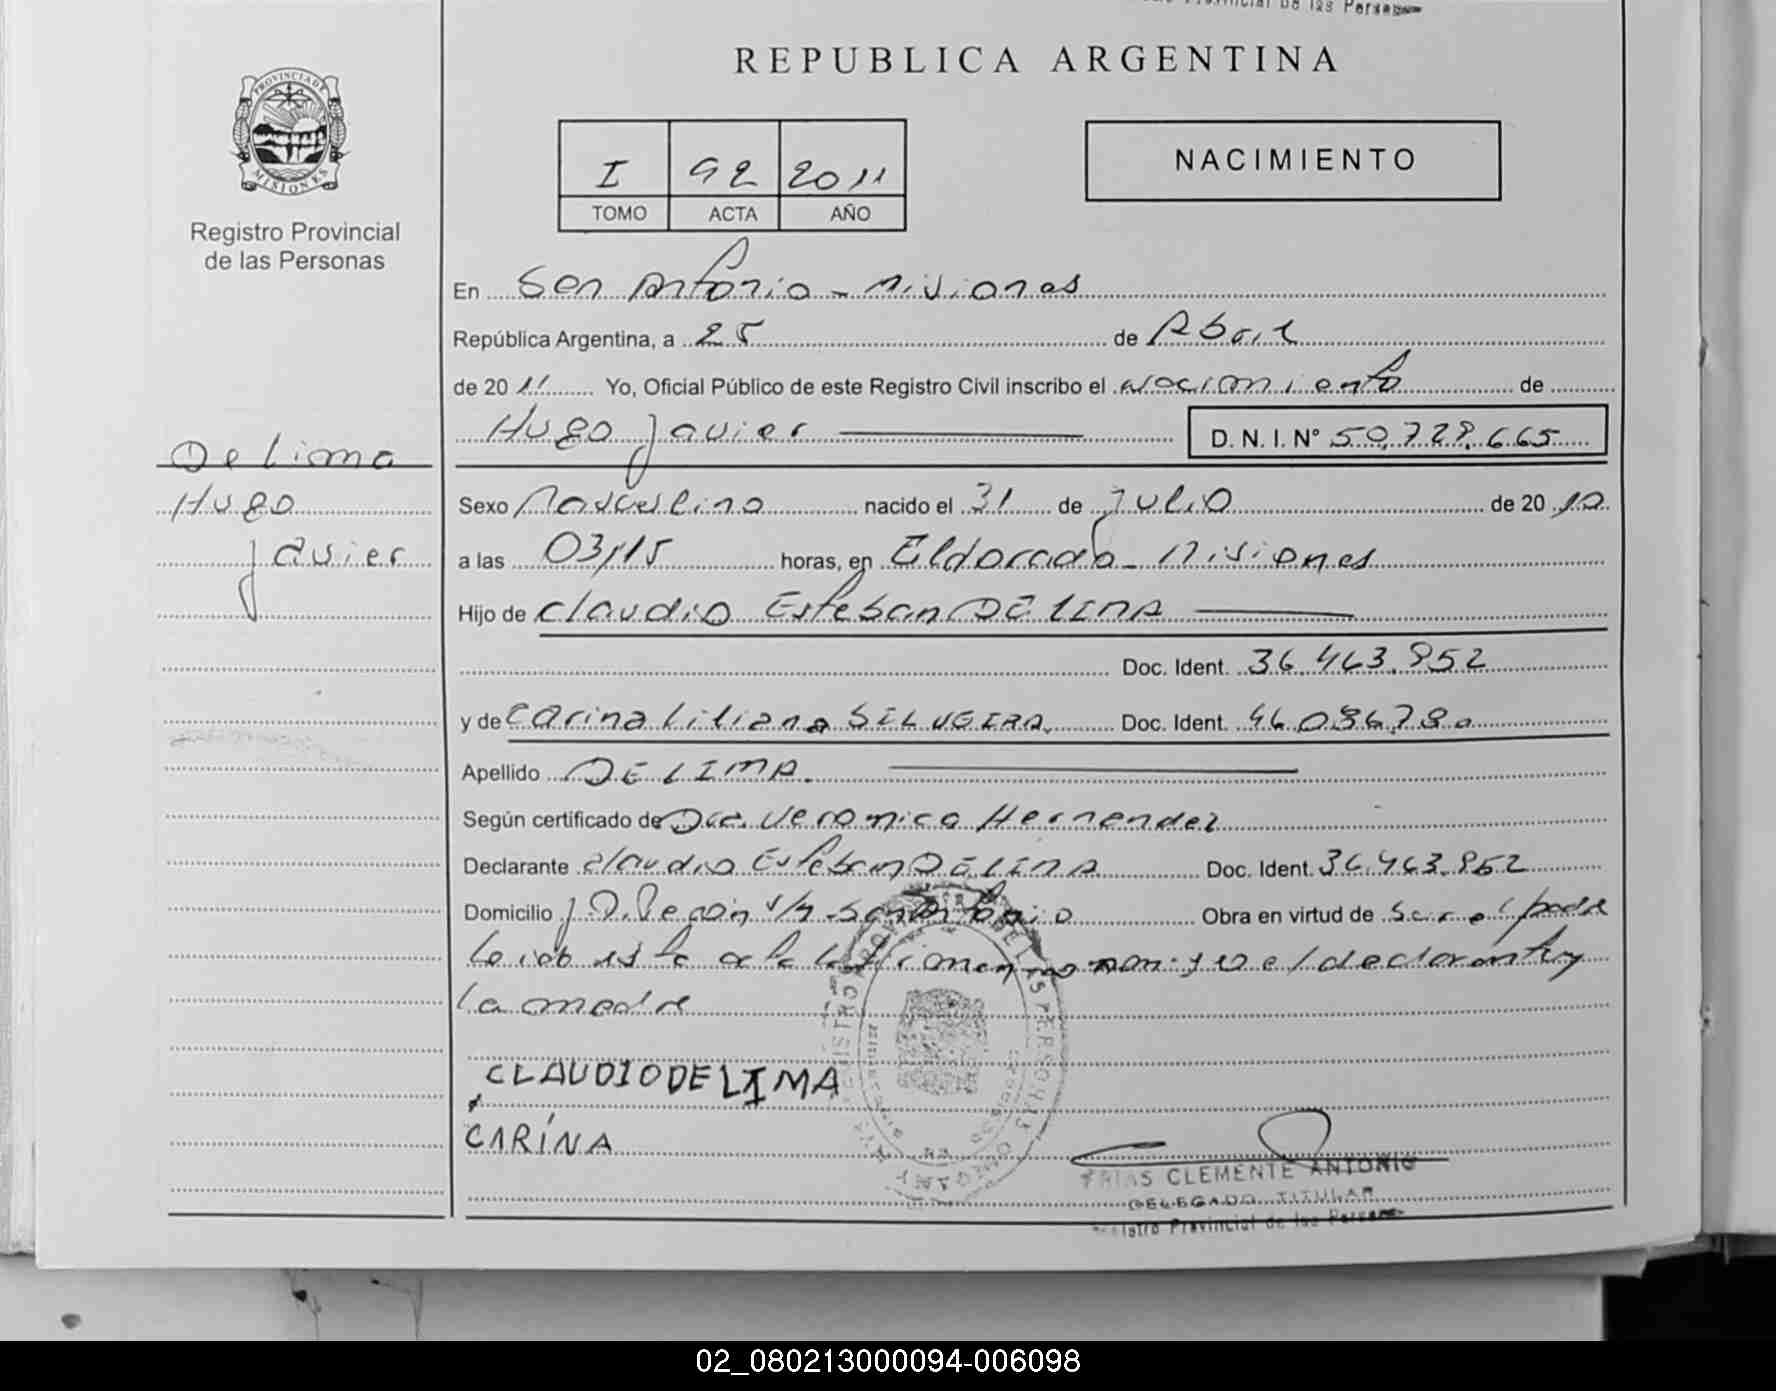 REPUBLICA ARGENTINA
PROVINCIA DE
MISIONES
Registro Provincial
de las Personas
I 92 2011
TOMO ACTA AÑO
NACIMIENTO
En San Antonio - Misiones
República Argentina, a 25 de Abril
de 20 11 Yo, Oficial Público de este Registro Civil inscribo el Nacimiento de
Hugo Javier D. N. I. N° 50.728.665
De lima
Hugo
Javier
Sexo Masculino nacido el 31 de Julio de 20 10
a las 03,15 horas, en Eldorado - Misiones
Hijo de Claudio Esteban DE LIMA
Doc. Ident. 36.463.852
y de Carina Liliana SILVEIRA Doc. Ident. 46.086.780
Apellido DE LIMA.
Según certificado de Dra. Veronica Hernendez
Declarante Claudio Esteban DE LIMA Doc. Ident. 36.463.852
Domicilio J.D. Peron, s/n San Antonio Obra en virtud de Ser el padre
el declarante y
la madre
CLAUDIO DE LIMA
CARÍNA
FRIAS CLEMENTE ANTONIO
DELEGADO TITULAR
Registro Provincial de las Personas
02_080213000094-006098